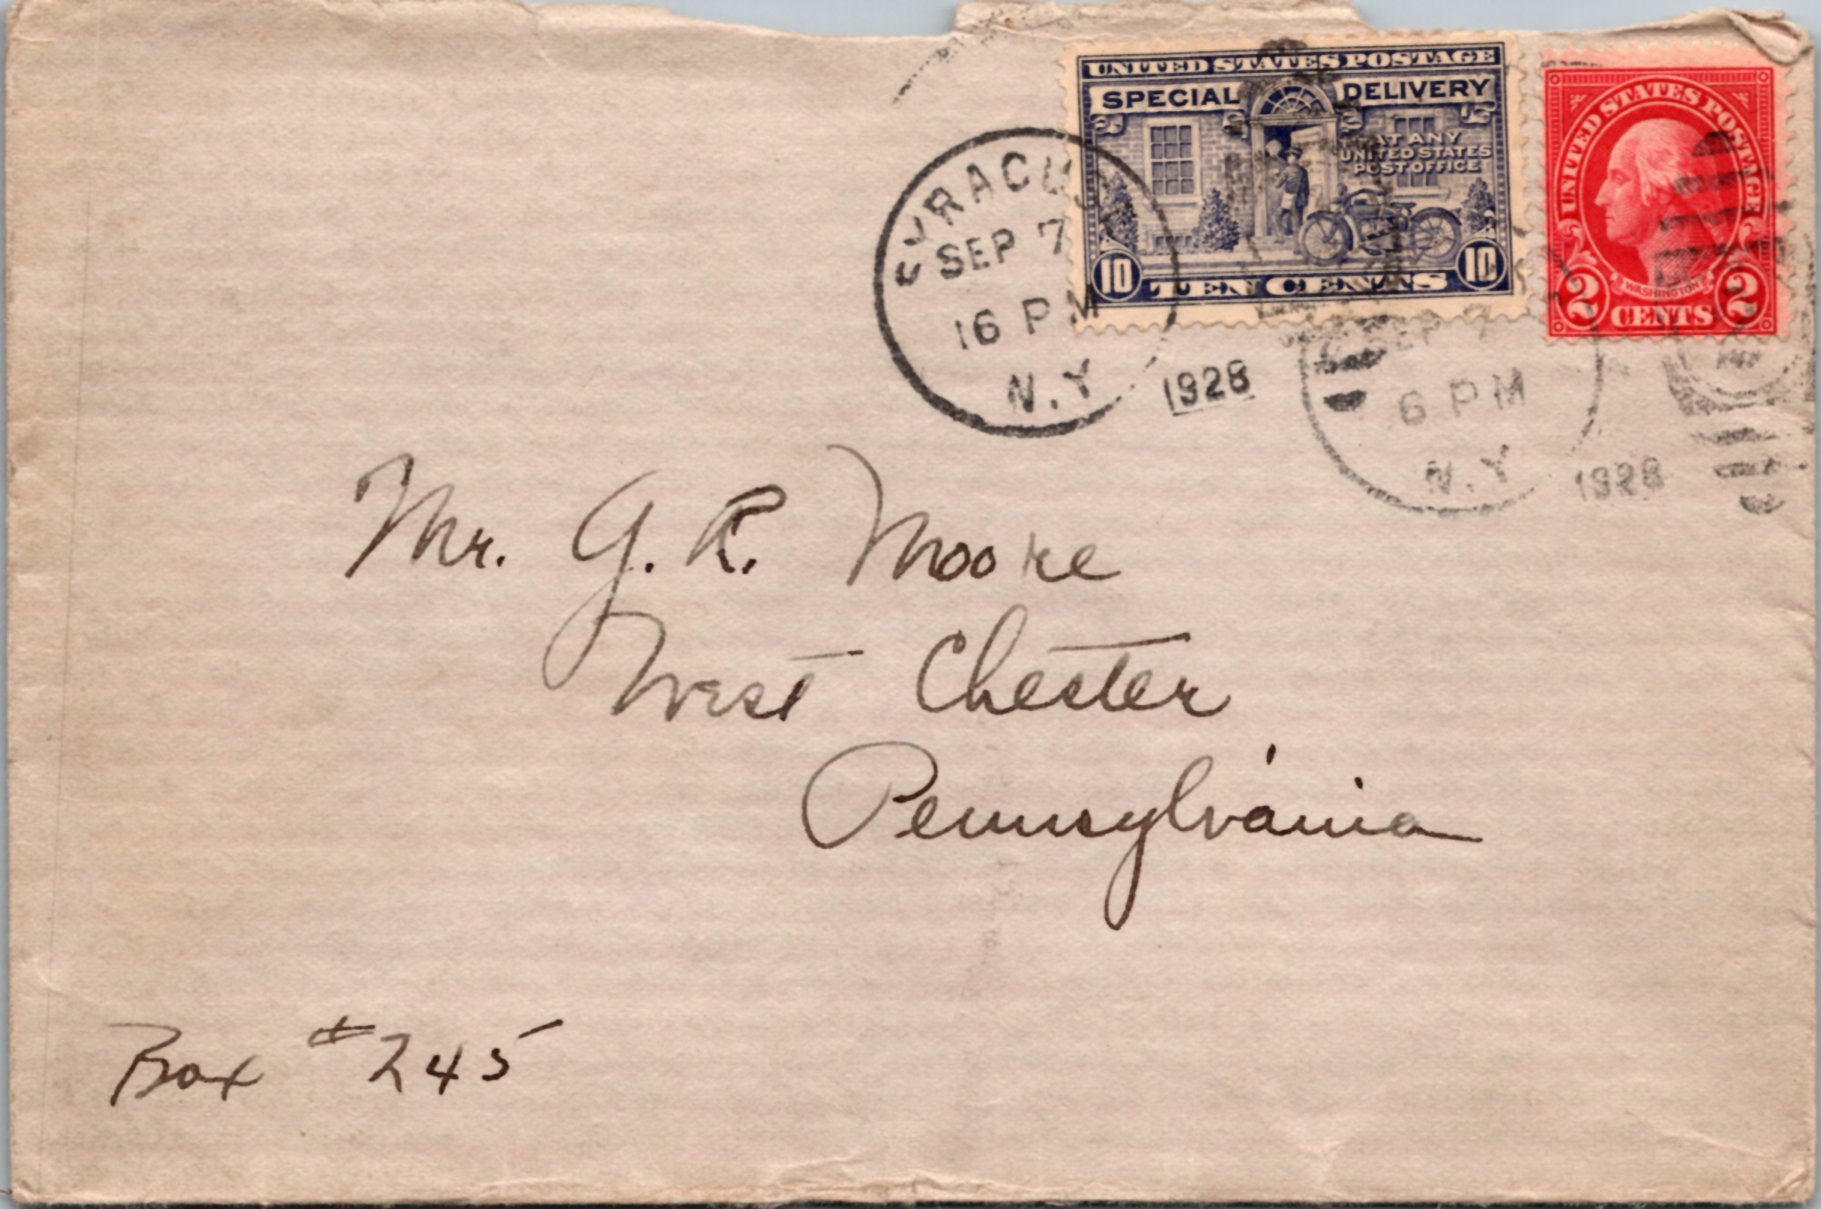 UNITED STATES POSTAGE
SPECIAL DELIVERY
AT ANY
UNITED STATES
POST OFFICE
10 TEN CENTS 10
UNITED STATES POSTAGE
WASHINGTON
2 CENTS 2
SYRACUSE
SEP 7
16 PM
N.Y.
1928
SEP 7
6 PM
N.Y.
1928
Mr. G. R. Moore
West Chester
Pennsylvania
Box # 245